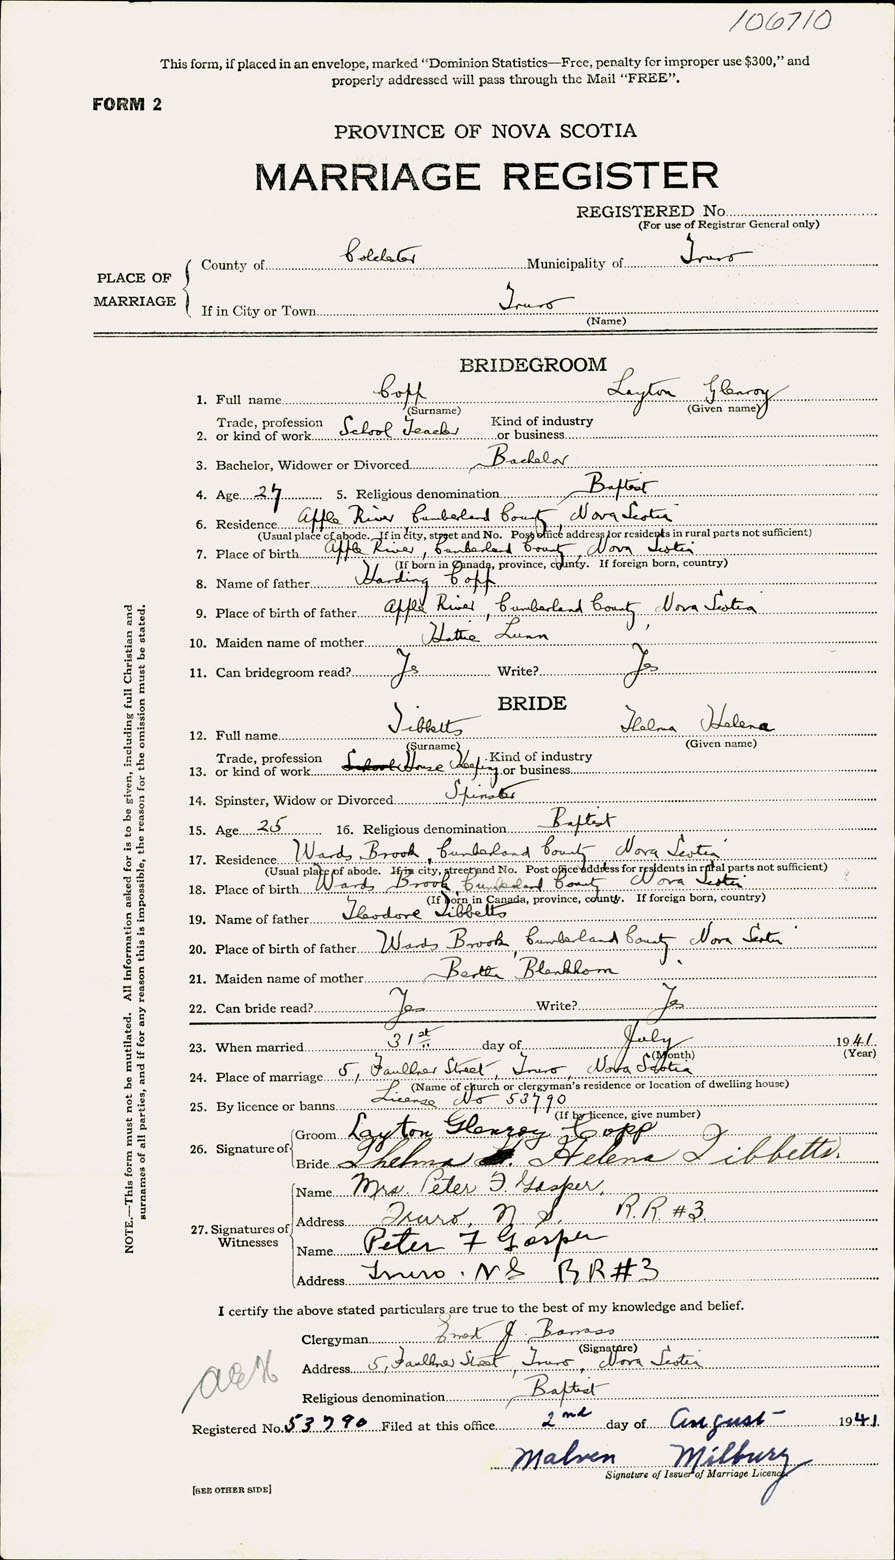 106710
This form, if placed in an envelope, marked “Dominion Statistics—Free, penalty for improper use $300,” and
properly addressed will pass through the Mail “FREE”.
FORM 2
PROVINCE OF NOVA SCOTIA
MARRIAGE REGISTER
REGISTERED No.
(For use of Registrar General only)
PLACE OF MARRIAGE
County of Colchester Municipality of Truro
If in City or Town Truro
(Name)
BRIDEGROOM
1. Full name Copp Layton Glenroy
(Surname) (Given name)
2. Trade, profession or kind of work School Teacher Kind of industry or business
3. Bachelor, Widower or Divorced Bachelor
4. Age 27 5. Religious denomination Baptist
6. Residence Apple River, Cumberland County, Nova Scotia
(Usual place of abode. If in city, street and No. Post office address for residents in rural parts not sufficient)
7. Place of birth Apple River, Cumberland County, Nova Scotia
(If born in Canada, province, county. If foreign born, country)
8. Name of father Harding Copp
9. Place of birth of father Apple River, Cumberland County, Nova Scotia
10. Maiden name of mother Hattie Lunn
11. Can bridegroom read? Yes Write? Yes
BRIDE
12. Full name Tibbetts Thelma Helena
(Surname) (Given name)
13. Trade, profession or kind of work School House Keeping Kind of industry or business
14. Spinster, Widow or Divorced Spinster
15. Age 25 16. Religious denomination Baptist
17. Residence Wards Brook, Cumberland County Nova Scotia
(Usual place of abode. If in city, street and No. Post office address for residents in rural parts not sufficient)
18. Place of birth Wards Brook, Cumberland County Nova Scotia
(If born in Canada, province, county. If foreign born, country)
19. Name of father Theodore Tibbetts
20. Place of birth of father Wards Brook, Cumberland County Nova Scotia
21. Maiden name of mother Bertha Blenkhorn
22. Can bride read? Yes Write? Yes
23. When married 31st day of July 1941
(Month) (Year)
24. Place of marriage 5, Faulkner Street, Truro, Nova Scotia
(Name of church or clergyman’s residence or location of dwelling house)
25. By licence or banns License No 53790
(If by licence, give number)
26. Signature of
Groom Layton Glenroy Copp
Bride Thelma Helena Tibbetts.
27. Signatures of Witnesses
Name Mrs. Peter F Gosper.
Address Truro, N S. R.R #3.
Name Peter F Gosper
Address Truro. N S R R #3
I certify the above stated particulars are true to the best of my knowledge and belief.
Clergyman J.
(Signature)
Address 5, Faulkner Street, Truro, Nova Scotia
Religious denomination Baptist
Registered No. 53790 Filed at this office 2nd day of August 1941
Malven Milbury
Signature of Issuer of Marriage Licence
[SEE OTHER SIDE]
NOTE.—This form must not be mutilated. All information asked for is to be given, including full Christian and
surnames of all parties, and if for any reason this is impossible, the reason for the omission must be stated.